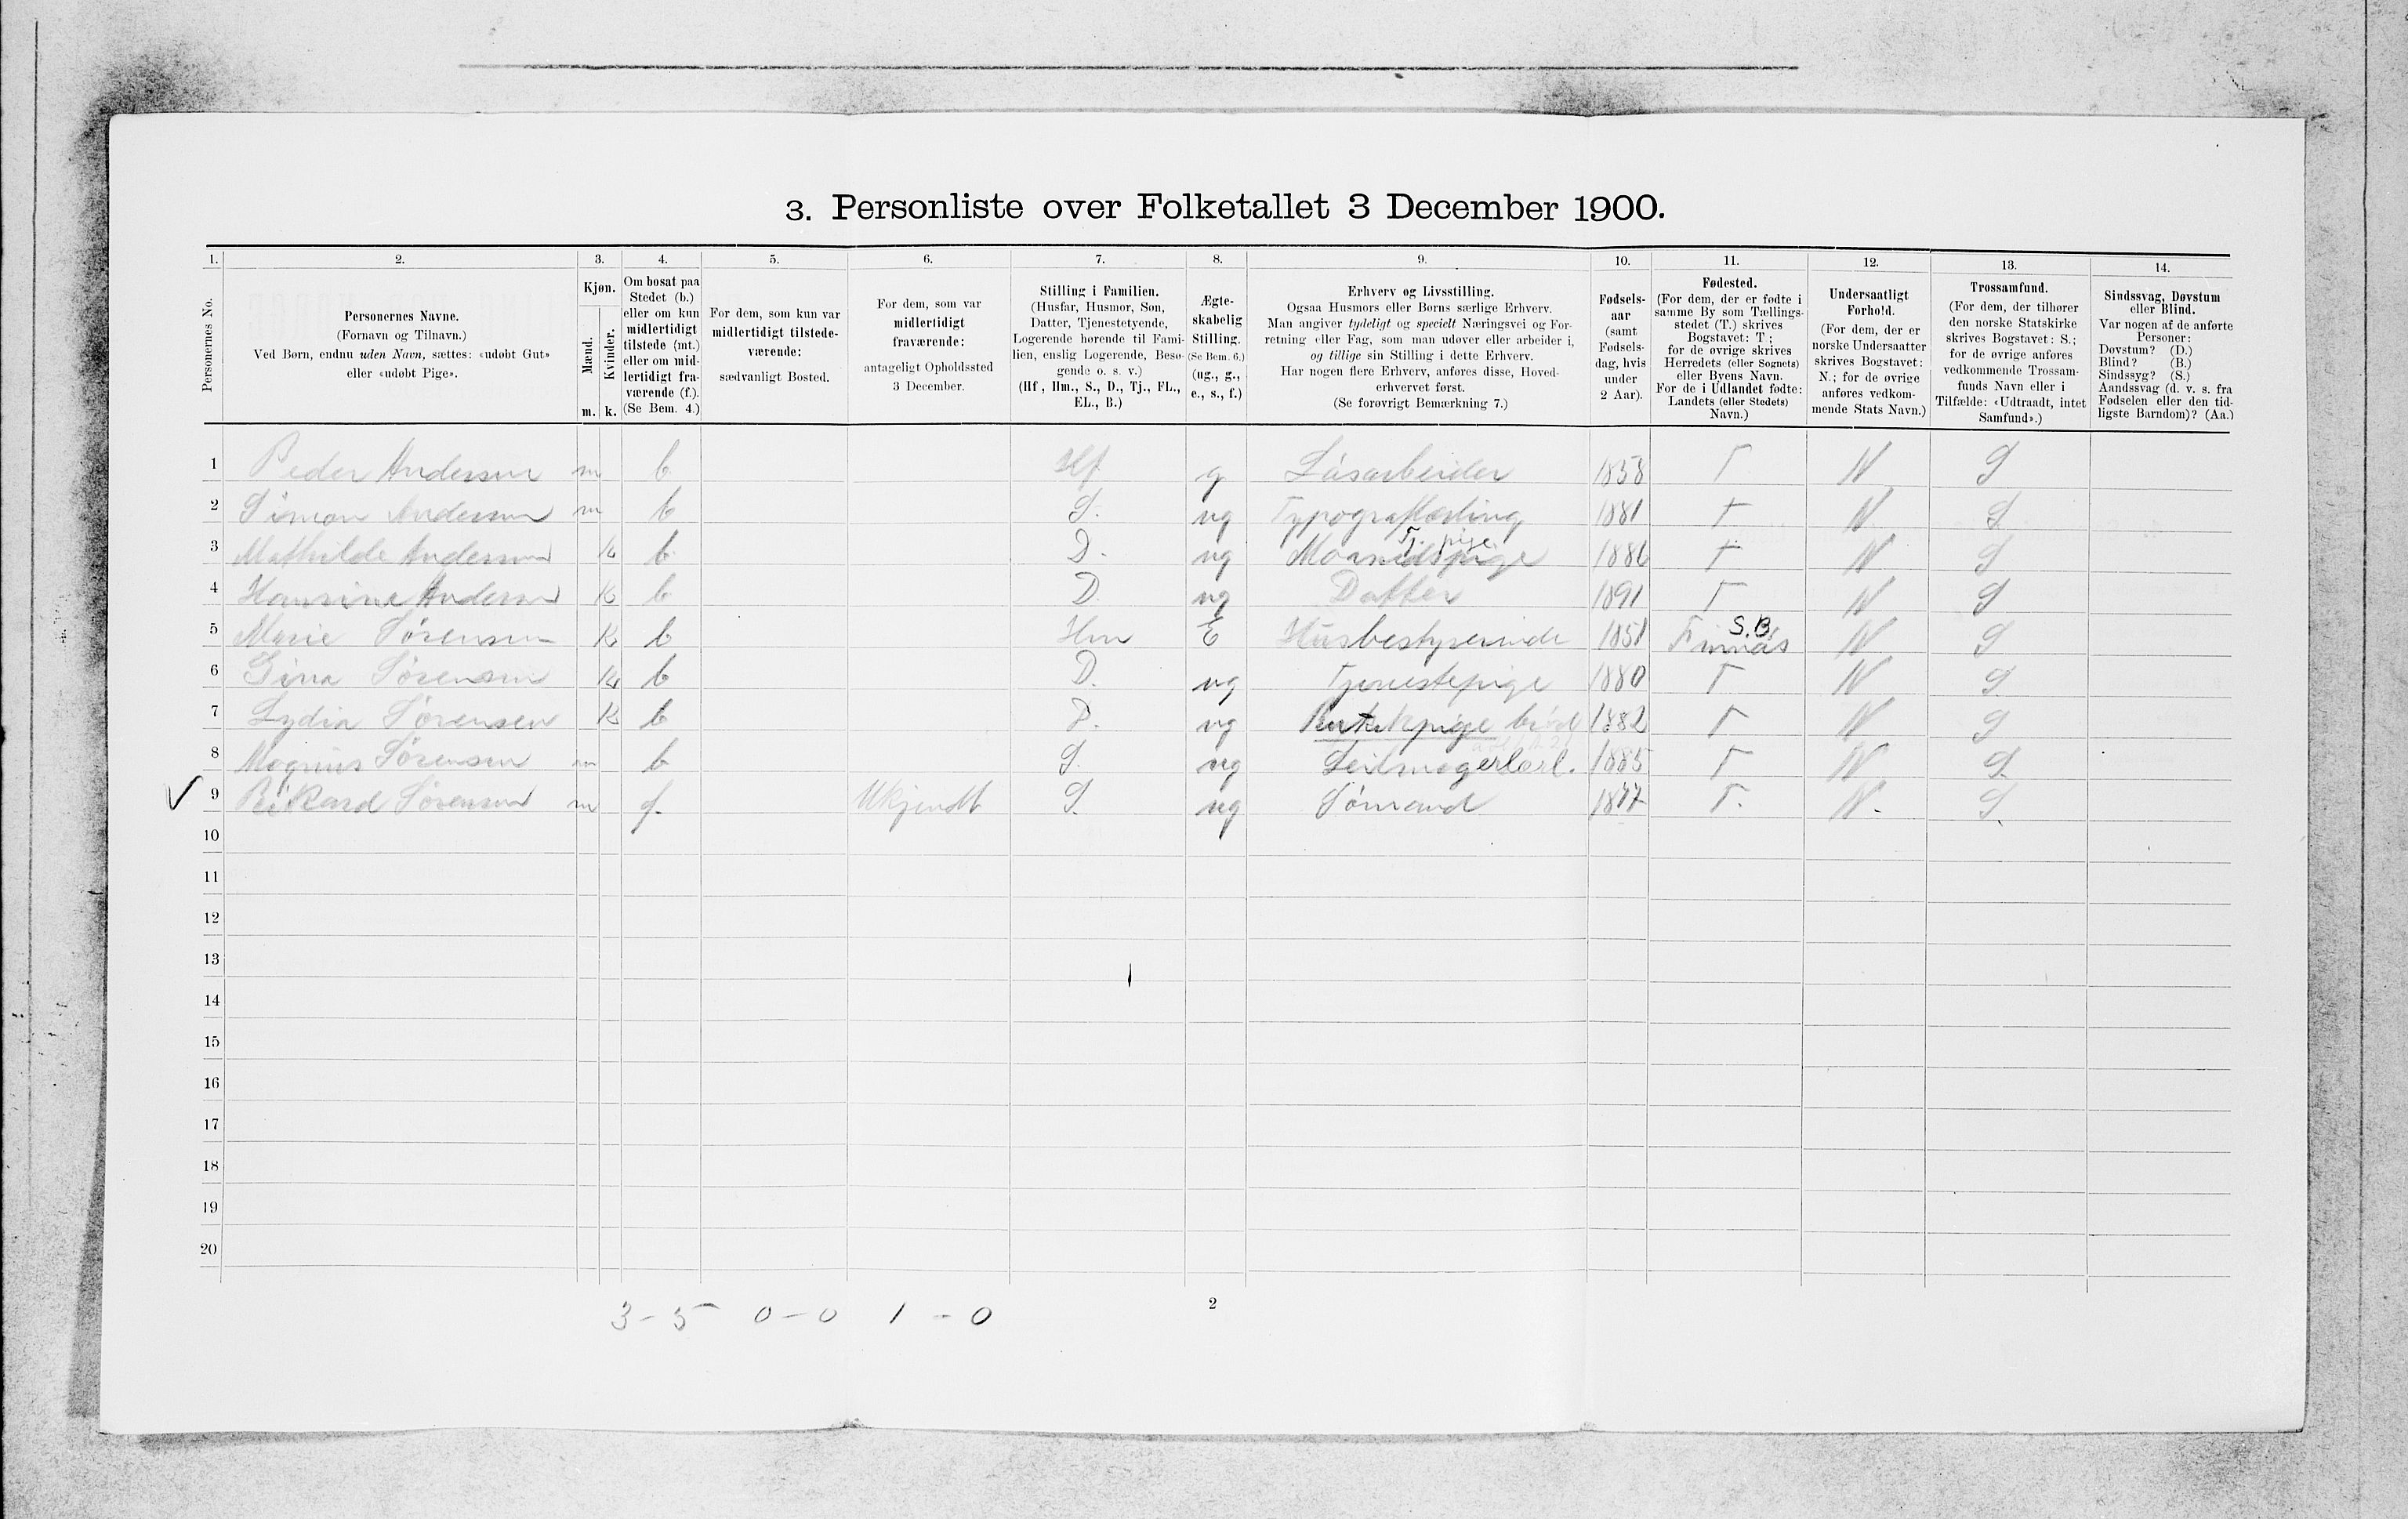 3. Personliste over Folketallet 3 December 1900.
1. 2. 3. 4. 5. 6. 7. 8. 9. 10. 11. 12. 13. 14.
Personernes No.
Personernes Navne.
(Fornavn og Tilnavn.)
Ved Børn, endnu uden Navn, sættes: «udøbt Gut»
eller «udøbt Pige».
Kjøn.
Mænd.
Kvinder.
m. k.
Om bosat paa
Stedet (b.)
eller om kun
midlertidigt
tilstede (mt.)
eller om mid-
lertidigt fra-
værende (f.).
(Se Bem. 4.)
For dem, som kun var
midlertidigt tilstede-
værende:
sædvanligt Bosted.
For dem, som var
midlertidigt
fraværende:
antageligt Opholdssted
3 December.
Stilling i Familien.
(Husfar, Husmor, Søn,
Datter, Tjenestetyende,
Logerende hørende til Fami-
lien, enslig Logerende, Besø-
gende o. s. v.)
(Hf, Hm., S., D., Tj., FL.,
EL., B.)
Ægte-
skabelig
Stilling.
(Se Bem. 6.)
(ug., g.,
e., s., f.)
Erhverv og Livsstilling.
Ogsaa Husmors eller Børns særlige Erhverv.
Man angiver tydeligt og specielt Næringsvei og For-
retning eller Fag, som man udøver eller arbeider i,
og tillige sin Stilling i dette Erhverv.
Har nogen flere Erhverv, anføres disse, Hoved-
erhvervet først.
(Se forøvrigt Bemærkning 7.)
Fødsels-
aar
(samt
Fødsels-
dag, hvis
under
2 Aar).
Fødested.
(For dem, der er fødte i
samme By som Tællings-
stedet (T.) skrives
Bogstavet: T;
for de øvrige skrives
Herredets (eller Sognets)
eller Byens Navn.
For de i Udlandet fødte:
Landets (eller Stedets)
Navn.)
Undersaatligt
Forhold.
(For dem, der er
norske Undersaatter
skrives Bogstavet:
N.; for de øvrige
anføres vedkom-
mende Stats Navn.)
Trossamfund.
(For dem, der tilhører
den norske Statskirke
skrives Bogstavet: S.;
for de øvrige anføres
vedkommende Trossam-
funds Navn eller i
Tilfælde: «Udtraadt, intet
Samfund».)
Sindssvag, Døvstum
eller Blind.
Var nogen af de anførte
Personer:
Døvstum? (D.)
Blind? (B.)
Sindssyg? (S.)
Aandssvag (d. v. s. fra
Fødselen eller den tid-
ligste Barndom)? (Aa.)
1 Peder Andersen m b Hf g Løsarbeider 1858 T N S
2 Simon Andersen m b S. ug Typograflærling 1881 T N S
Tj. pige
3 Mathilde Andersen K b D. ug Maanedspige 1886 T N S
4 Hansine Andersen K b D. ug Datter 1891 T N S
S.B.
5 Marie Sørensen K b Hm E Husbestyrerinde 1851 Finnås N S
6 Gina Sørensen K b D. ug Tjenestepige 1880 T N S
7 Lydia Sørensen K b D. ug 1882 T N S
8 Magnus Sørensen m b S. ug Seilmagerlærl. 1885 T N S.
✓ 9 Rikard Sørensen m f. Ukjendt S. ug Sømand 1877 T. N. S.
10
11
12
13
14
15
16
17
18
19
20
3-5 0-0 1-0
2